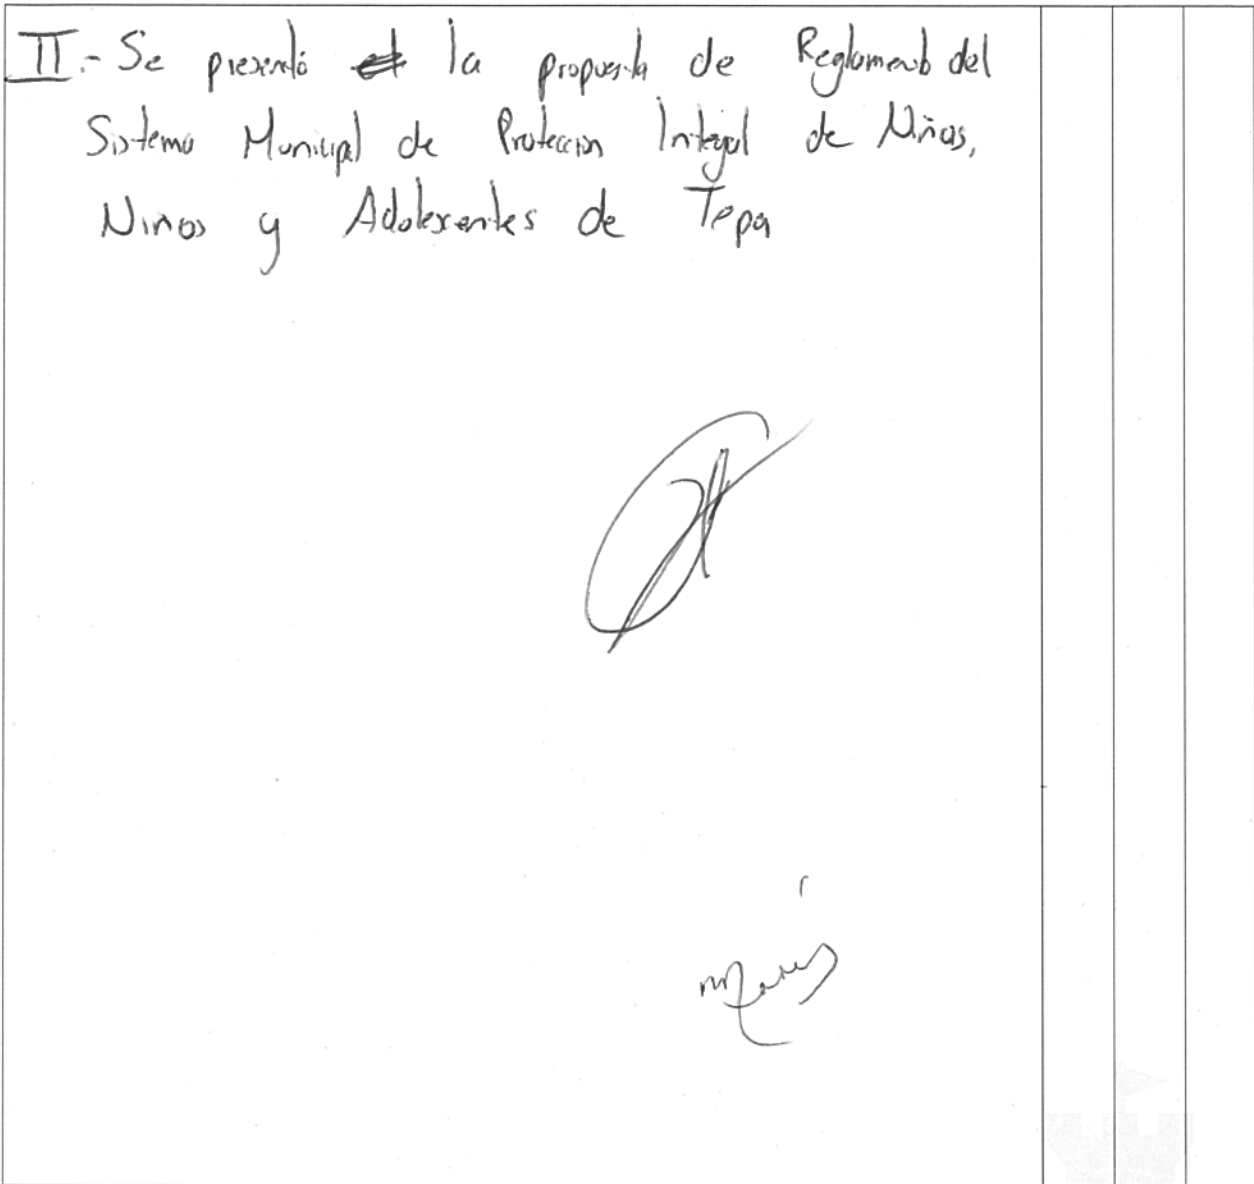 II.- Se presentó la propuesta de Reglamento del
Sistema Municipal de Protección Integral de Niñas,
Niños y Adolescentes de Tepa